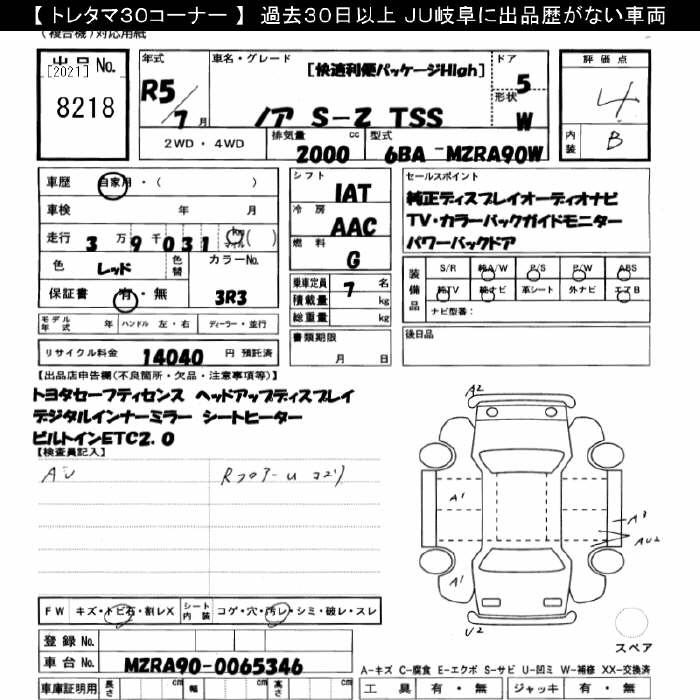 【 トレタマ30コーナー 】 過去30日以上 JU岐阜に出品歴がない車両
(複合機)対応用紙
出品 No.
[2021]
8218
年式
R5/7月
車名・グレード
[快適利便パッケージHigh]
ノア S-Z TSS
ドア
5
形状
W
2WD・4WD
排気量
2000 cc
型式
6BA-MZRA90W
評価点
4
内装
B
車歴 自家用・( )
車検 年 月
走行 3万9千031 km マイル ( )
色 レッド 色替 カラーNo. 3R3
保証書 有・無
モデル年式 年 ハンドル 左・右 ディーラー・並行
リサイクル料金 14040 円 預託済
シフト IAT
冷房 AAC
燃料 G
乗車定員 7 名
積載量 kg
総重量 kg
書類期限
月 日
セールスポイント
純正ディスプレイオーディオナビ
TV・カラーバックガイドモニター
パワーバックドア
装備品
S/R 純A/W P/S P/W ABS
純TV 純ナビ 革シート 外ナビ エアB
ナビ型番:
後日品
【出品店申告欄(不良箇所・欠品・注意事項等)】
トヨタセーフティセンス ヘッドアップディスプレイ
デジタルインナーミラー シートヒーター
ビルトインETC2.0
【検査員記入】
AU Rフロアーu コゲリ
A2
A1
A3
AU2
A1
U2
スペア
FW キズ・トビ石・割レX シート内装 コゲ・穴・汚レ・シミ・破レ・スレ
登録 No.
車台 No. MZRA90-0065346
車庫証明用 長さ cm 幅 cm 高さ cm
A-キズ C-腐食 E-エクボ S-サビ U-凹ミ W-補修 XX-交換済
工具 有・無 ジャッキ 有・無